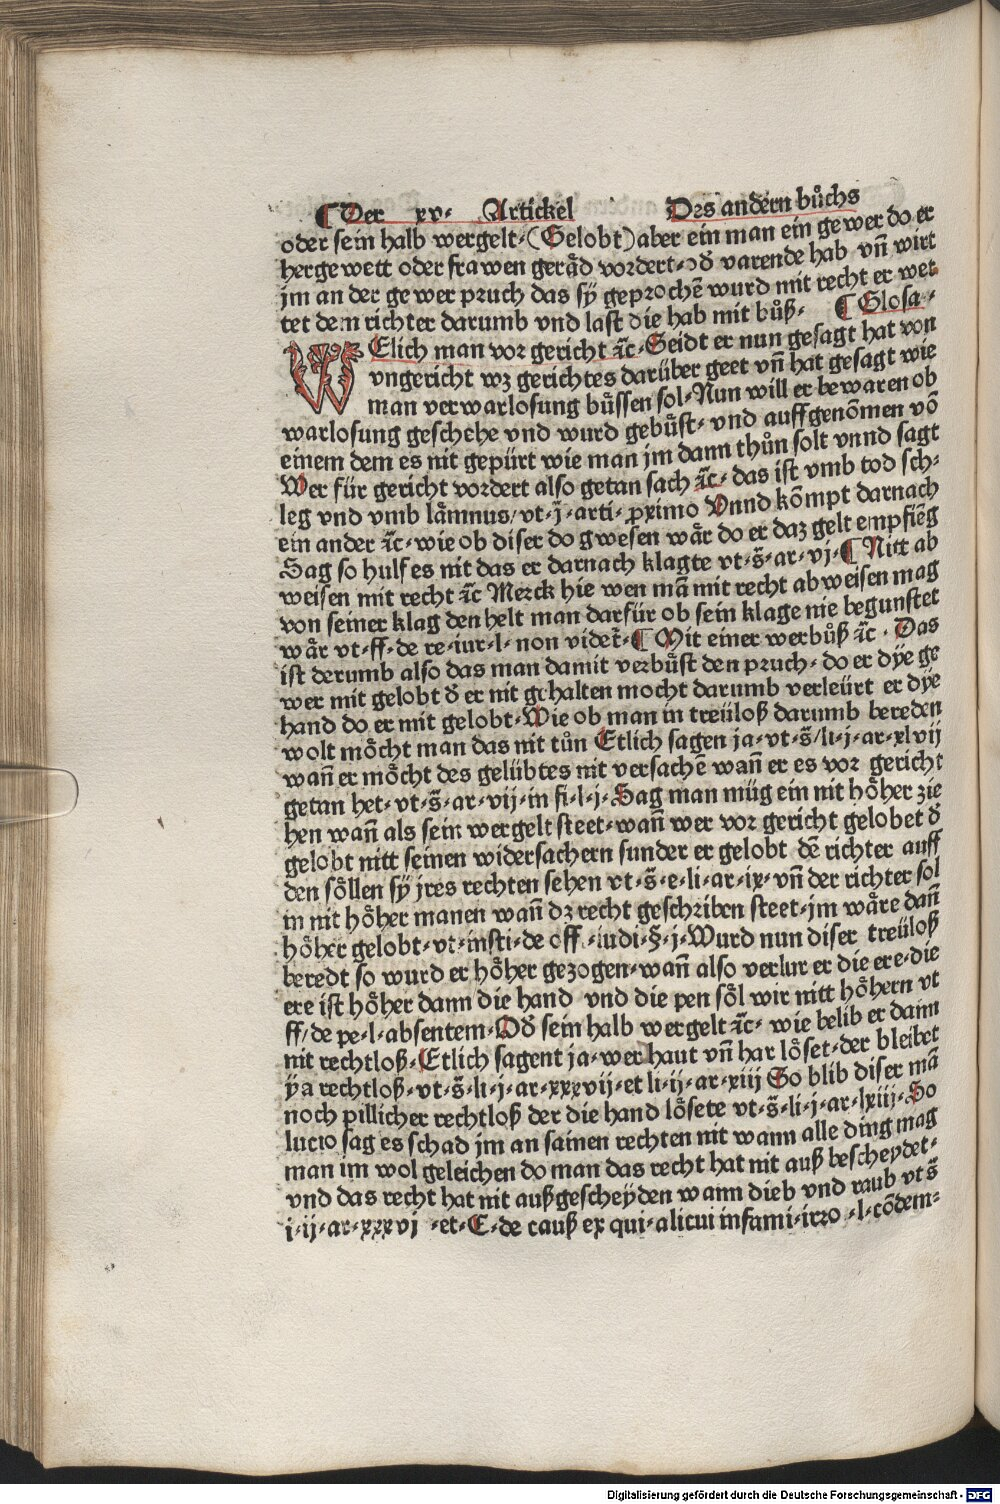 ¶ Der xv· Artickel Des andern bůchs
oder sein halb wergelt·(Gelobt)aber ein man ein gewer do er
hergewett oder frawen geräd vordert·od̄ varende hab vnn̄ wirt
jm an der gewer pruch das sÿ geprochē wurd mit recht er wet
tet dem richter darumb vnd laſt die hab mit bůß· ¶ Glosa·
WElich man vor gericht ꝛc̄·Seidt er nun gesagt hat von
vngericht wz gerichtes darüber geet vnn̄ hat gesagt wie
man verwarlosung büssen sol·Nun will er bewaren ob
warlosung geschehe vnd wurd gebůſt· vnd auffgenōmen vō
einem dem es nit gepürt wie man jm dann thůn solt vnnd sagt
Wer für gericht vordert also getan sach ꝛc̄· das iſt vmb tod sch⸗
leg vnd vmb lämnus/vt·j·arti· ꝓximo Vnnd kōmpt darnach
ein ander ꝛc̄·wie ob diser do gwesen wär do er daz gelt empfiēg
Sag so hulf es nit das er darnach klagte vt·s̄·ar·vj·¶ Nitt ab
weisen mit recht ꝛc̄ Merck hie wen mā mit recht abweisen mag
von seiner klag den helt man darfür ob sein klage nie begunſtet
wär vt·ff·de re·iur·l·non videt̄·¶ Mit einer werbůß ꝛc̄·Das
iſt derumb also das man damit verbůſt den pruch·do er dÿe ge
wer mit gelobt d̄ er nit gehalten mocht darumb verleürt er dÿe
hand do er mit gelobt·Wie ob man in treüloß darumb bereden
wolt möcht man das nit tůn Etlich sagen ja·vt·s̄/li·j·ar·xlvij
wann̄ er möcht des gelübtes nit versachē wann̄ er es vor gericht
getan het·vt·s̄·ar·vij·in fi·l·j·Sag man müg ein nit höher zie
hen wann̄ als sein wergelt ſteet·wann̄ wer vor gericht gelobet d̄
gelobt nitt seinen widersachern sunder er gelobt dē richter auff
den söllen sÿ jres rechten sehen vt·s̄·e·li·ar·ix·vnn̄ der richter sol
in nit höher manen wann̄ dz recht geschriben ſteet·jm wäre dann̄
höher gelobt·vt·inſti·de off·iudi·§·j·Wurd nun diser treüloß
beredt so wurd er höher gezogen·wann̄ also verlur er die ere·die
ere iſt höher dann die hand vnd die pen söl wir nitt höhern vt
ff/de pe·l·absentem·Od̄ sein halb wergelt ꝛc̄· wie belib er dann
nit rechtloß·Etlich sagent ja·wer haut vnn̄ har löset·der bleibet
ÿa rechtloß·vt·s̄·li·j·ar·xxxvij·et li·ij·ar·xiij So blib diser mā
noch pillicher rechtloß der die hand lösete vt·s̄·li·j·ar·lxiij·So
lucio sag es schad jm an sainen rechten nit wann alle ding mag
man im wol geleichen do man das recht hat nit auß bescheydet·
vnd das recht hat nit außgescheyden wann dieb vnd raub vt s̄
i·ij·ar·xxxvj ·et·C·de causß ex qui·alicui infami·irro·l·cōdem⸗
Digitalisierung gefördert durch die Deutsche Forschungsgemeinschaft - DFG